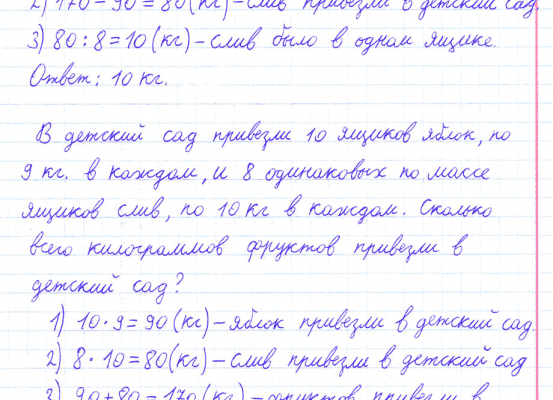 2) 170 - 90 = 80 (кг) - слив привезли в детский сад.
3) 80 : 8 = 10 (кг) - слив было в одном ящике.
Ответ: 10 кг.
В детский сад привезли 10 ящиков яблок, по
9 кг. в каждом, и 8 одинаковых по массе
ящиков слив, по 10 кг в каждом. Сколько
всего килограммов фруктов привезли в
детский сад?
1) 10 · 9 = 90 (кг) - яблок привезли в детский сад.
2) 8 · 10 = 80 (кг) - слив привезли в детский сад
3) 90 + 80 = 170 (кг) - фруктов привезли в